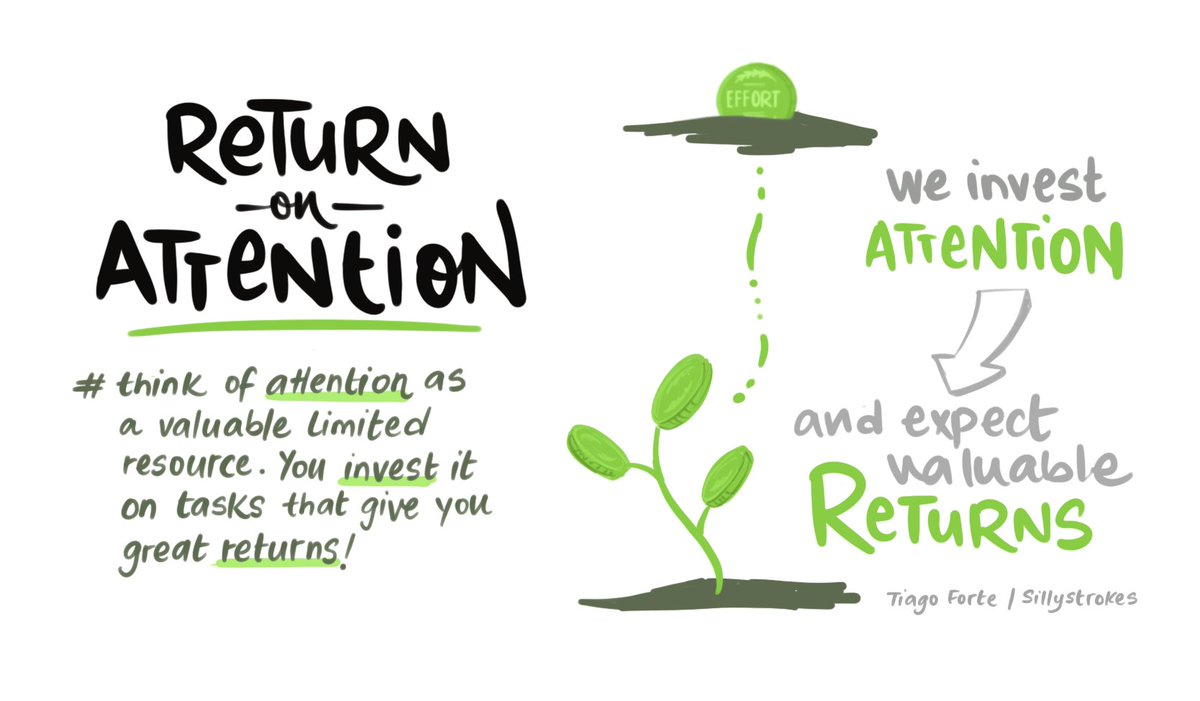 Return
on
Attention
# think of attention as
a valuable limited
resource. You invest it
on tasks that give you
great returns!
EFFORT
We invest
Attention
and expect
valuable
Returns
Tiago Forte / Sillystrokes